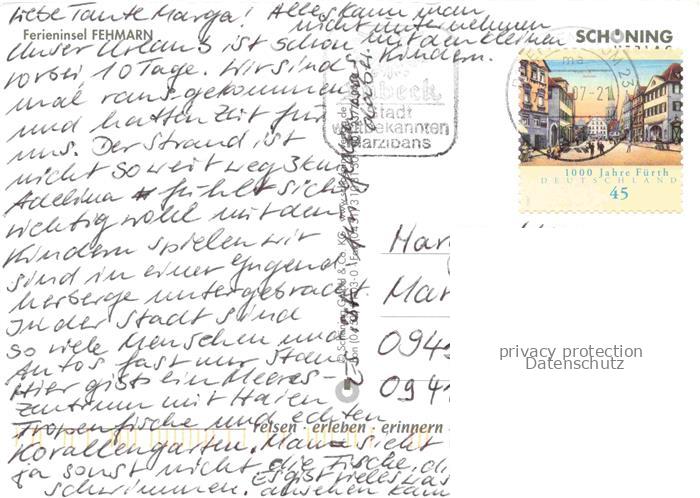 Liebe Tante Marga! Alles kann man
nicht unternehmen
mit den kleinen
Kindern.
Ferieninsel FEHMARN
SCHÖNING
VERLAG
Unser Urlaub ist schon
vorbei 10 Tage. Wir sind
mal rausgekommen
und hatten Zeit für
uns. Der Strand ist
nicht so weit weg 3km
Adelina fühlt sich
richtig wohl mit den
Kindern spielen wir
sind in einer Jugend
herberge untergebracht.
In der Stadt sind
so viele Menschen und
Autos fast nur Stau
Hier gibts ein Meeres-
zentrum mit Haien
Tropenfische und echten
Korallengarten. Man sieht
ja sonst nicht die Fische, di
schwimmen. Es gibt vieles was
ansehen kann
Stadt
weltbekannten
Marzipans
23
07-21
1000 Jahre Fürth
DEUTSCHLAND
45
Har
Mar
094
094
reisen · erleben · erinnern
privacy protection
Datenschutz